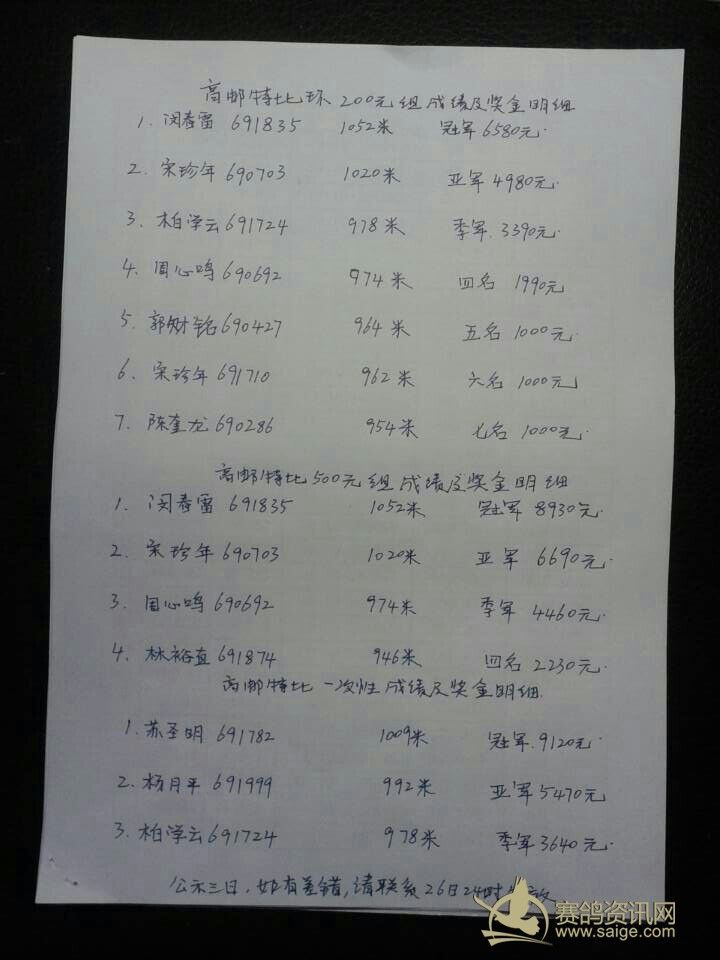 高邮特比环 200元组成绩及奖金明细
1. 闵春雷 691835 1052米 冠军 6580元.
2. 宋珍年 690703 1020米 亚军 4980元.
3. 柏学云 691724 978米 季军. 3390元.
4. 周心鸣 690692 974米 四名 1990元
5. 郭财铭 690427 964米 五名 1000元.
6. 宋珍年 691710 962米 六名 1000元
7. 陈奎龙 690286 954米 七名 1000元
高邮特比500元组成绩及奖金明细
1. 闵春雷 691835 1052米 冠军 8930元.
2. 宋珍年 690703 1020米 亚军 6690元.
3. 周心鸣 690692 974米 季军 4460元.
4. 林裕直 691874 946米 四名 2230元.
高邮特比一次性成绩及奖金明细.
1. 苏圣明 691782 1009米 冠军. 9120元.
2. 杨月平 691999 992米 亚军 5470元
3. 柏学云 691724 978米 季军 3640元.
公示三日, 如有差错, 请联系 26日24时
赛鸽资讯网
www.saige.com